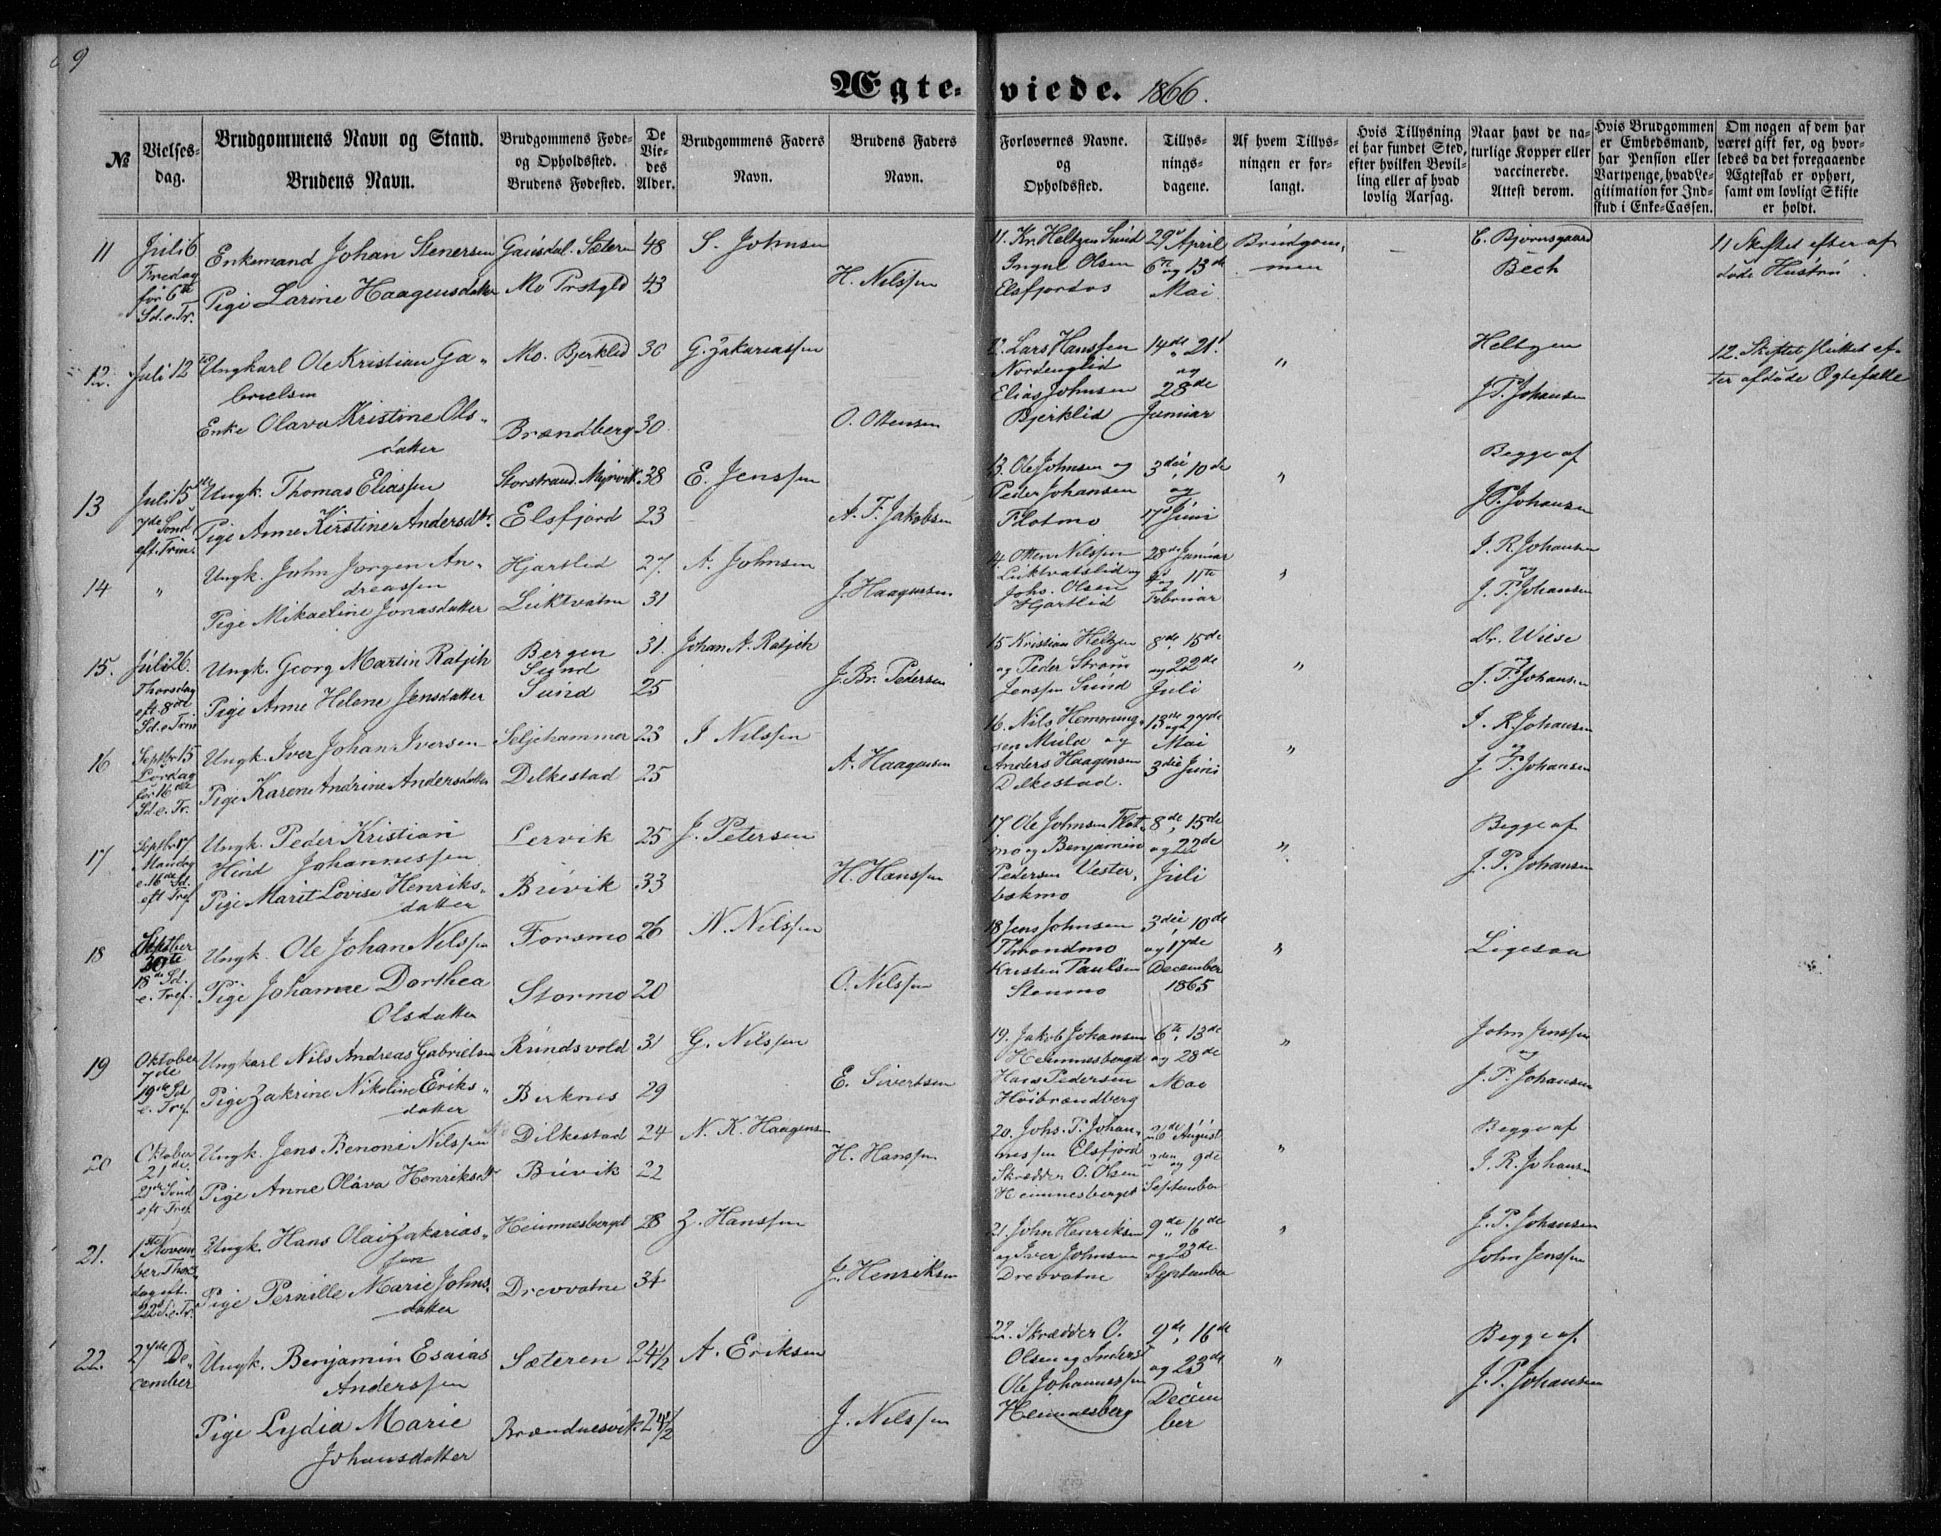 9
Ægteviede. 1866.
№
Vielses-
dag.
Brudgommens Navn og Stand.
Brudens Navn.
Brudgommens Føde-
og Opholdssted.
Brudens Fødested.
De
Vie-
des
Alder.
Brudgommens Faders
Navn.
Brudens Faders
Navn.
Forlovernes Navne.
og
Opholdssted.
Tillys-
nings-
dagene.
Af hvem Tillys-
ningen er for-
langt.
Hvis Tillysning
ei har fundet Sted,
efter hvilken Bevil-
ling eller af hvad
lovlig Aarsag.
Naar havt de na-
turlige Kopper eller
vaccinerede.
Attest derom.
Hvis Brudgommen
er Embedsmand,
har Pension eller
Vartpenge, hvad Le-
gitimation for Ind-
skud i Enke-Cassen.
Om nogen af dem har
været gift før, og hvor-
ledes da det foregaaende
Ægteskab er ophørt,
samt om lovligt Skifte
er holdt.
11
Juli 6
Fredag
før 6te
Sd. e. Tr.
Enkemand Johan Stenersen
Pige Larine Haagensdatter
Gausdal. Sæteren
Mo Prstgld
48
43
S. Johnsen
H. Nilssen
11. Kr. Heltzen Sund
Ingul Olsen
Elsfjordos
29de April
6te og 13de
Mai
Brudgom-
men
C. Bjørnsgaard
Bech
11 Skiftet efter af-
døde Hustru
12.
Juli 12te
Ungkarl Ole Kristian Ga-
brielsen
Enke Olava Kristine Ols-
datter
Mo. Bjerklid
Brændberg
30
30
G. Zakariassen
O. Ottensen
12. Lars Hanssen
Nordenglid
Elias Johnsen
Bjerklid
14de 21de
og
28de
Januar
"
Heltzen
J. P. Johansen
12. Skiftet sluttet ef-
ter afdøde Ægtefælle
13
Juli 15de
7de Sønd.
eft. Trin.
Ungk. Thomas Eliassen
Pige Anne Kirstine Andersdtr.
Storstrand. Myrvik
Elsfjord
38
23
E. Jenssen
A. F. Jakobsen
13. Ole Johnsen og
Peder Johansen
Flotmo
3die, 10de
og
17de Juni
"
Begge af
J. P. Johansen
14
"
Ungk. John Jørgen An-
dreassen
Pige Mikaeline Jonasdatter
Hjartlid
Luktvatn
27.
31
A. Johnsen
J. Haagensen
14. Otten Nilssen
Luktvatslid og
Johs. Olsen
Hjartlid
28de Januar
4de og 11te
Februar
"
J. R. Johansen
og
J. P. Johansen
15.
Juli 26.
Thorsdag
eft. 8de
Sd. e. Trin
Ungk. Georg Martin Ratjeh
Pige Anne Helene Jensdatter
Bergen
Sund
Sund
31.
25
Johan A. Ratjeh
J. Br. Pedersen
15 Kristian Heltzen
og Peder Strøm
Jenssen Sund
8de, 15de
og 22de
Juli
"
Dr. Wiese
og
J. P. Johansen
16
Septbr 15
Lørdag
før 16de
Sd. e. Tr.
Ungk. Iver Johan Iversen
Pige Karen Andrine Andersdatter
Seljehammer
Dilkestad
23
25
I Nilssen
A. Haagensen
16. Nils Hemming-
sen Mula og
Anders Haagensen
Dilkestad.
13de og 27de
Mai
3die Juni
"
J. R. Johansen
og
J. P. Johansen
17
Septbr 17
Mandag
e. 16de Sd.
eft Tref
Ungk. Peder Kristian
Hind Johannessen
Pige Marit Lovise Henriks-
datter
Lervik
Buvik
25
33
J. Petersen
H. Hanssen
17 Ole Johnsen Flot-
mo og Benjamin
Pedersen Vester-
bokmo
8de, 15de
og 22de
Juli
"
Begge af
J. P. Johansen
18
September
30te
18de Sd.
e. Tref.
Ungk. Ole Johan Nilssen
Pige Johanne Dorthea
Olsdatter
Forsmo
Stormo
26
20
N. Nilssen
O. Nilssen
18 Jens Johnsen
Almondmo
Kristen Paulsen
Stenmo
3die, 10de
og 17de
December
1865
"
Ligesaa
19
Oktober
7de
19de Sd
e. Tref.
Ungkarl Nils Andreas Gabrielsen
Pige Zakrine Nikoline Eriks-
datter
Rundsvold
Birknes
31
29
G. Nilssen
E. Sivertsen
19. Jakob Johansen
Hemnesberget
Hans Pedersen
Høibrændberg
6te, 13de
og 28de
Mai
"
John Jenssen
og
J. P. Johansen
20
Oktober
21de.
21de Sønd
eft Tref.
Ungk. Jens Benoni Nilssen
Pige Anne Olava Henriksdtr
Dilkestad
Buvik
24
22
N. K. Haagensen
H. Hanssen
20. Johs. P. Johan-
nessen Elsfjord
Skrædder O. Olsen
Hemnesberget
26de August
2den og 9de
September
"
Begge af
J. R. Johansen
21.
1ste Novem-
ber Thors-
dag eft.
22de S. e. Tr.
Ungk. Hans Olai Zakarias-
sen
Pige Pernille Marie Johns-
datter
Hemnesberget
Drevvatne
28
34
Z. Hanssen
J. Henriksen
21. John Henriksen
og Iver Johnsen
Drevvatne
9de, 16de
og 23de
September
"
J. P. Johansen
John Jenssen
22.
27de De-
cember
Ungk. Benjamin Esaias
Anderssen
Pige Lydia Marie
Johansdatter
Sæteren
Brændnesvik
24 1/2
24 1/2
A. Eriksen
J. Nilssen
22. Skrædder O.
Olsen og Inderst
Ole Johannessen
Hemnesberg
9de, 16de
og 23de
Decem
ber
"
Begge af
J. P. Johansen